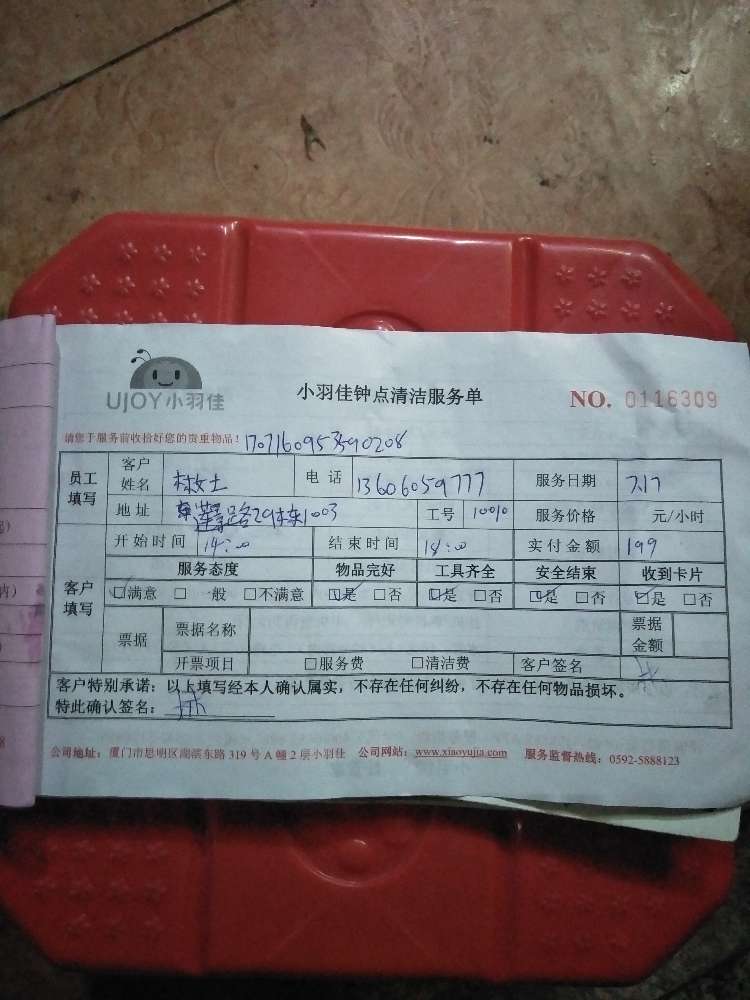 UJOY小羽佳
小羽佳钟点清洁服务单
NO. 0116309
请您于服务前收拾好您的贵重物品！
员工填写 客户姓名 林女士 电话 13606059777 服务日期 7.17
地址 工号 服务价格 元/小时
客户填写 开始时间 14:00 结束时间 18:00 实付金额 199
服务态度 物品完好 工具齐全 安全结束 收到卡片
□满意 □一般 □不满意 □是 □否 □是 □否 □是 □否 □是 □否
票据 票据名称 票据金额
开票项目 □服务费 □清洁费 客户签名 林
客户特别承诺：以上填写经本人确认属实，不存在任何纠纷，不存在任何物品损坏。
特此确认签名： 林
公司地址：厦门市思明区湖滨东路 319 号 A 幢 2 层小羽佳 公司网站：www.xiaoyujia.com 服务监督热线：0592-5888123